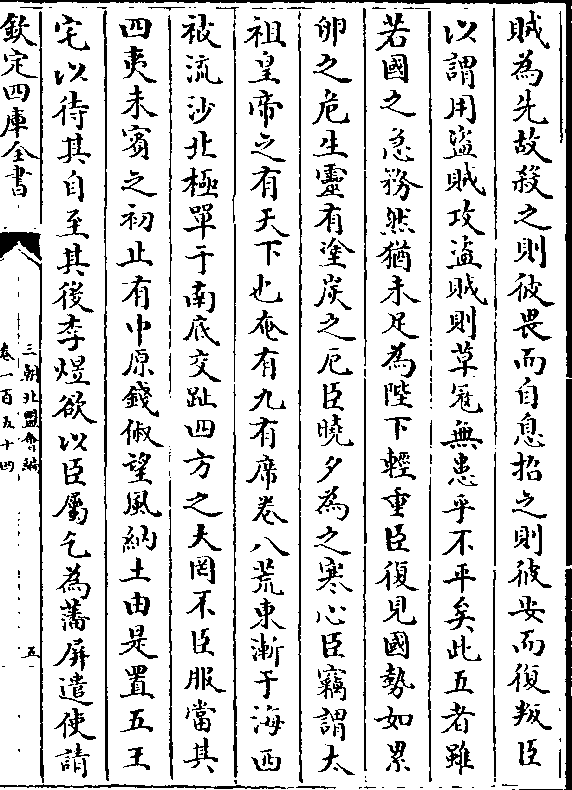 賊為先故殺之則彼畏而自息招之則彼安而復叛臣
以謂用盜賊攻盜賊則草冦無患乎不平矣此五者雖
若國之急務然猶未足為陛下輕重臣復見國勢如累
卵之危生靈有塗炭之厄臣曉夕為之寒心臣竊謂太
祖皇帝之有天下也奄有九有席卷八荒東漸于海西
被流沙北極單于南底交趾四方之夫罔不臣服當其
四夷未賓之初止有中原錢俶望風納土由是置五王
宅以待其自至其後李煜欲以臣屬乞為藩屏遣使請
欽定四庫全書
三朝北盟會編
卷一百五十四
五